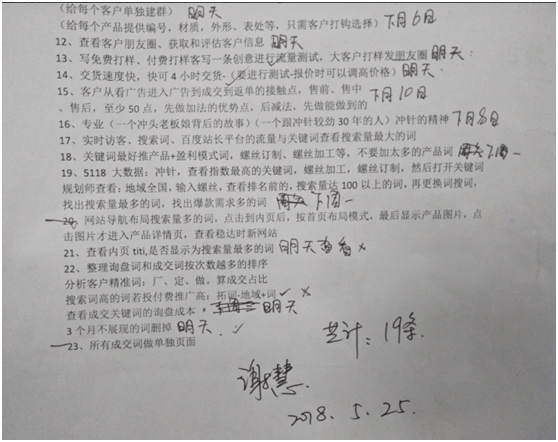 （给每个客户单独建群） 明天
（给每个产品提供编号，材质，外形、表处等，只需客户打钩选择） 下月6日
12、查看客户朋友圈、获取和评估客户信息 明天
13、写免费打样、付费打样客写一条创意进行流量测试，大客户打样发朋友圈 明天
14、交货速度快，快可4小时交货-（要进行测试-报价时可以调高价格） 明天
15、客户从看广告进入广告到成交到返单的接触点，售前、售中 下月10日
、售后，至少50点，先做加法的优势点，后减法，先做能做到的
16、专业（一个冲头老板娘背后的故事）（一个跟冲针较劲30年的人）冲针的精神 下月8日
17、实时访客、搜索词、百度站长平台的流量与关键词查看搜索量最大的词
18、关键词最好推产品+盈利模式词，螺丝订制、螺丝加工等，不要加太多的产品词 下周一
19、5118 大数据：冲针，查看指数最高的关键词，螺丝加工，螺丝订制，然后打开关键词
规划师查看：地域全国，输入螺丝，查看排名前的，搜索量达100以上的词，再更换词搜词，
找出搜索量最多的词，找出爆款需求多的词 下周一
20、网站导航布局搜索量多的词，点击到内页后，按首页布局模式，最后显示产品图片，点
击图片才进入产品详情页，查看稳达时新网站
21、查看内页 titi,是否显示为搜索量最多的词 明天查看 ×
22、整理询盘词和成交词按次数越多的排序
分析客户精准词：厂、定、做。算成交占比
搜索词高的词若投付费推广高：拓词-地域+词 ✓ ×
查看成交关键词的询盘成本。 明天
3个月不展现的词删掉 明天 ✓
23、所有成交词做单独页面
共计：19条.
谢慧.
2018、5、25.